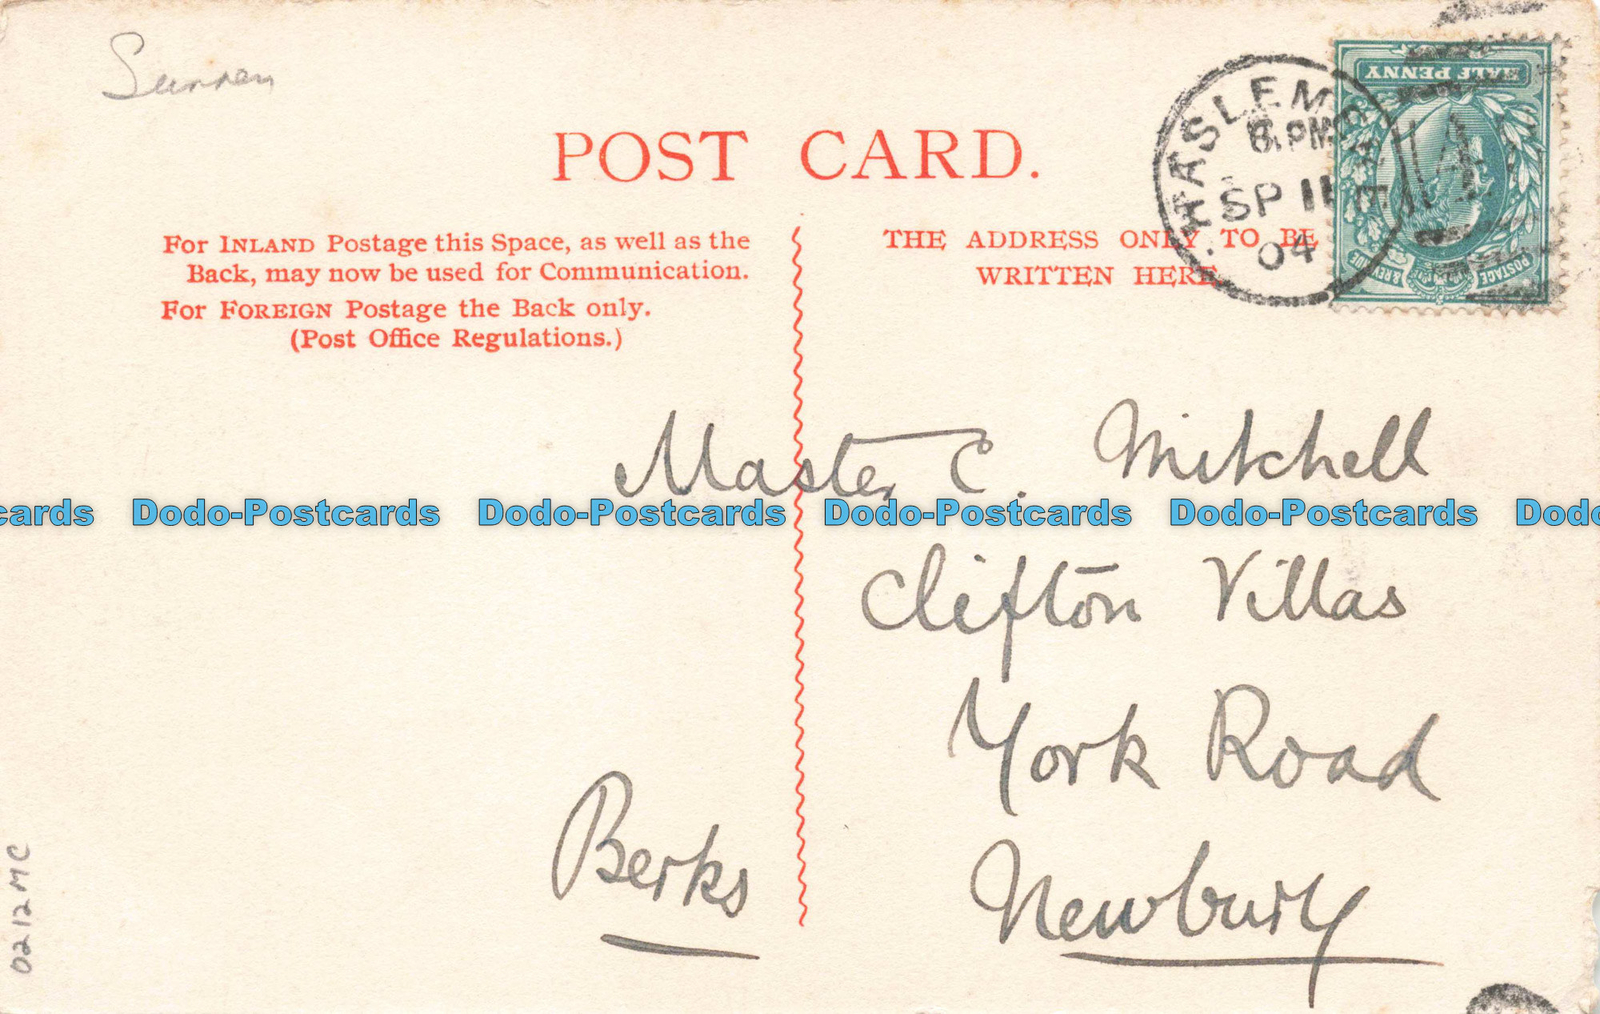 Surrey
POST CARD.
For INLAND Postage this Space, as well as the
Back, may now be used for Communication.
For FOREIGN Postage the Back only.
(Post Office Regulations.)
THE ADDRESS ONLY TO BE
WRITTEN HERE.
HASLEMERE
8.PM
SP 11
04
HALF PENNY
POSTAGE & REVENUE
Master C. Mitchell
cards Dodo-Postcards Dodo-Postcards Dodo-Postcards Dodo-Postcards Dodo
Clifton Villas
York Road
Newbury
Berks
0212MC